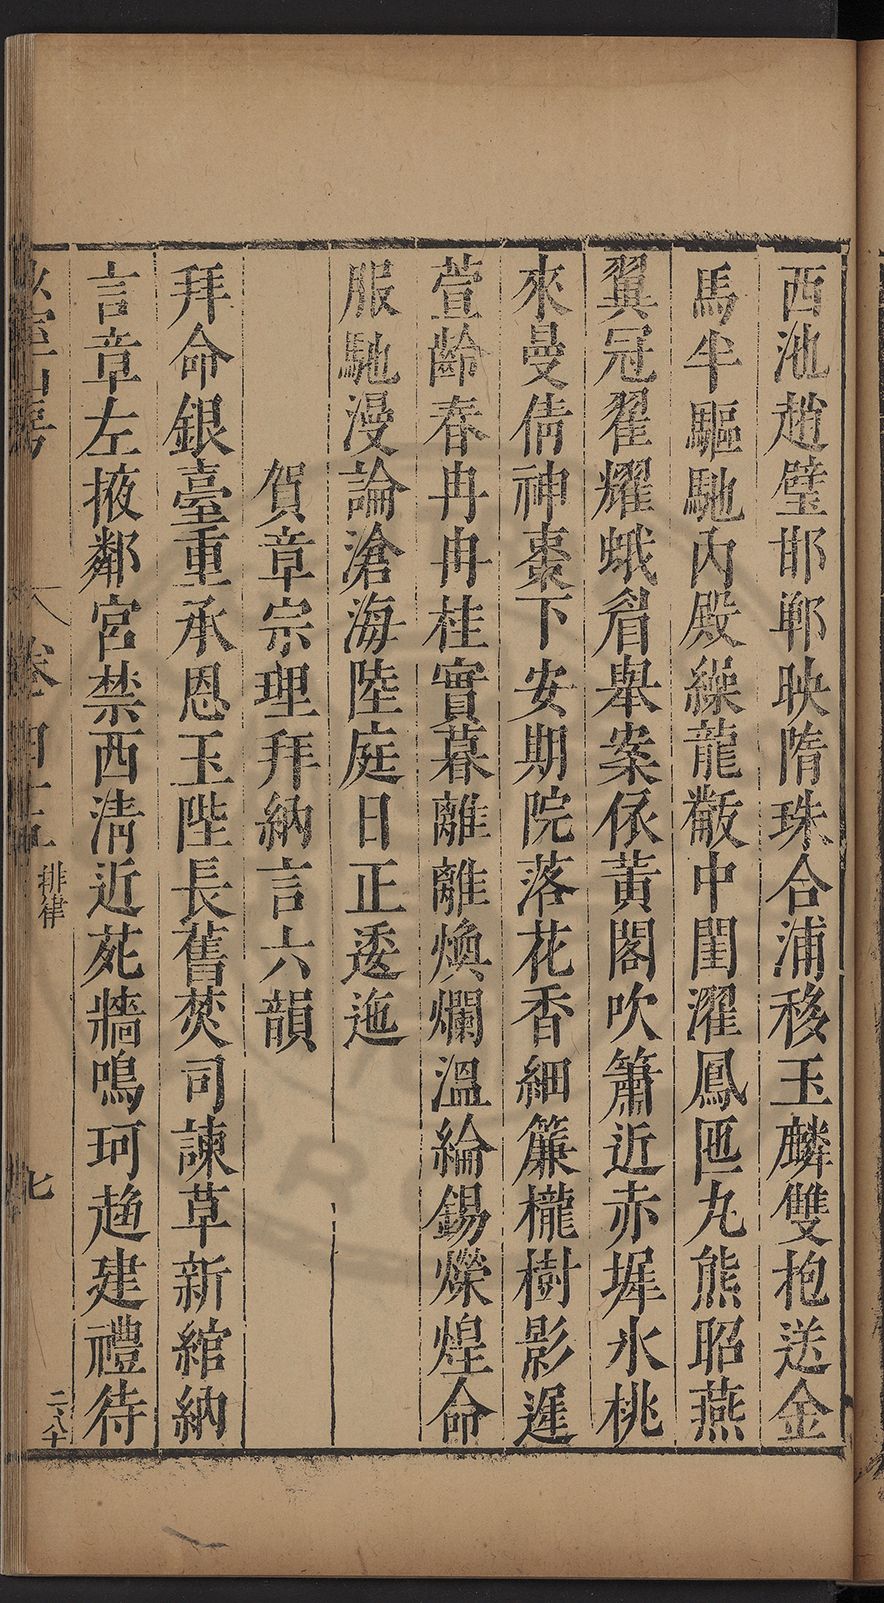 西池趙璧邯鄲映隋珠合浦移玉麟雙抱送金
馬半驅馳內殿繰龍黻中閨濯鳳匜丸熊昭燕
翼冠翟耀蛾眉舉案依黃閣吹簫近赤墀水桃
來曼倩神棗下安期院落花香細簾櫳樹影遲
萱齡春冉冉桂實暮離離煥爛溫綸錫爍煌命
服馳漫論滄海陸庭日正逶迤
賀章宗理拜納言六韻
拜命銀臺重承恩玉陛長舊焚司諫草新綰納
言章左掖鄰宮禁西清近苑牆鳴珂趨建禮待
卷四十五
排律
七
二八十